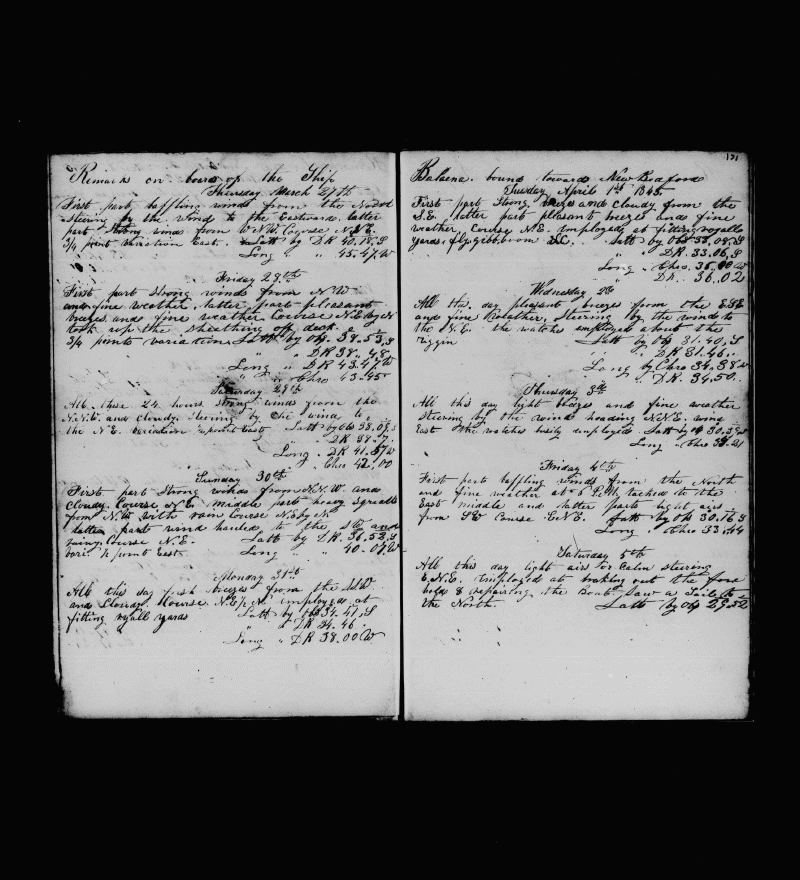 Remarks on board of the Ship
Thursday March 27th
First part baffling winds from the
Steering by the wind to the Eastward. latter
part strong winds from W.N.W. Course N.N.E.
3/4 point variation East. Latt by DR 40.18.S
Long " " 45.47.W
Friday 28th
First part strong winds from N W
and fine weather. latter part pleasant
breezes and fine weather Course N.E by N
took up the sheathing off deck
3/4 points variation Latt by Ob 38.53.S
" " DR 38.48
Long " DR 43.47 W
" " Chro 43.45
Saturday 29th
All these 24 hours strong winds from the
N.N.E. and cloudy steering by the wind to
the N E. Variation point East Latt by Ob 38.09.S
" " DR 38.7.
Long . DR 41.57 W
" Chro 42.00
Sunday 30th
First part Strong winds from N.N.W. and
Cloudy. Course N E. middle part heavy Squalls
from N.W with rain Course N E by N
latter part wind hauled to the and
rainy. Course N.E. Latt by DR. 36.52.S
vari. 1/2 point East Long " " 40.07.W
Monday 31st
All this day fresh breezes from the
and Cloudy. Course N.E by N. employed at
fitting royall yards Latt by Ob 34.47.S
" DR 34.46
Long " DR 38.00 W
131
Balaena bound towards New Bedford
Tuesday April 1st 1845
First part Strong breezes and Cloudy from the
S.E. latter part pleasant breezes and fine
weather, Course N.E. Employed at fitting royall
yards. flying jibboom &c. Latt by Ob 33.08.S
" DR 33.06.S
Long . Chro. 36.00 W
" DR. 36.02
Wednesday 2d
All this day pleasant breezes from the ESE
and fine Weather, Steering by the wind to
the N.E. the watches employed about the
riggin Latt by Ob 31.40.S
" DR 31.46.
Long by Chro 34.38 W
" DR. 34.50.
Thursday 3d
All this day light breezes and fine weather
Steering by the wind heading N.N.E. wind
East the watches busily employed. Latt by Ob 30.39.S
Long . Chro 33.21
Friday 4th
First part baffling winds from the North
and fine weather at 6 P.M. tacked to the
East middle and latter parts light airs
from SW Course E.N.E. Latt by Ob 30.16 S
Long . Chro 33.44
Saturday 5th
All this day light airs or Calm steering
E.N.E. Employed at breaking out the fore
hold & repairing the Boats Saw a Sail to
the North. Latt by Ob 29.52